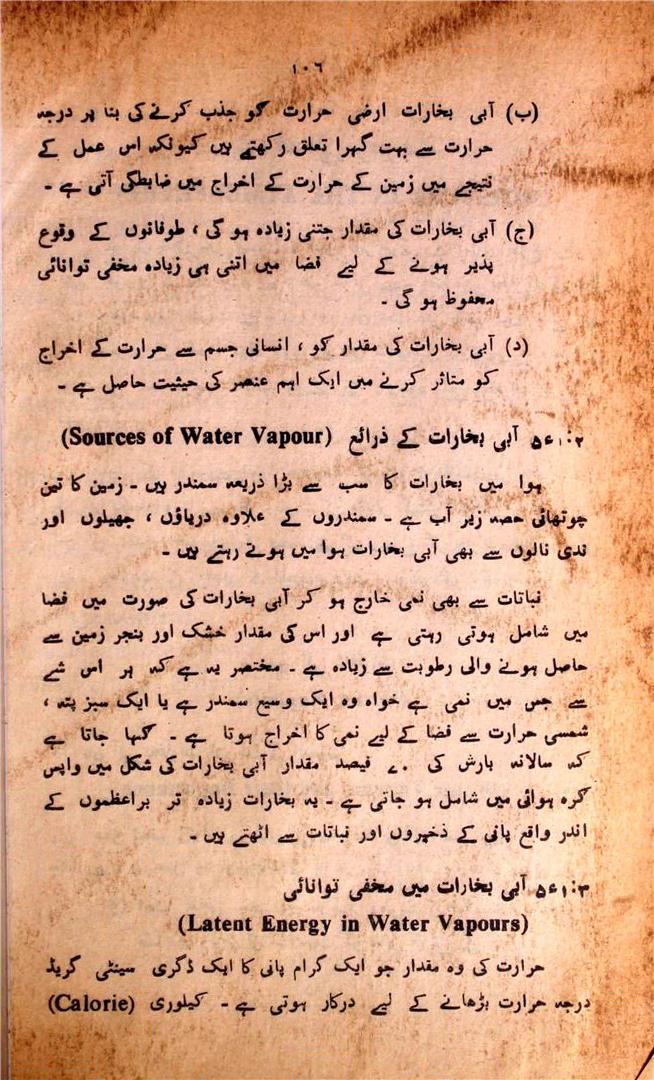 ۱۰۶
(ب) آبی بخارات ارضی حرارت کو جذب کرنے کی بنا پر درجہ
حرارت سے بہت گہرا تعلق رکھتے ہیں کیونکہ اس عمل کے
نتیجے میں زمین کے حرارت کے اخراج میں ضابطگی آتی ہے ۔
(ج) آبی بخارات کی مقدار جتنی زیادہ ہو گی ، طوفانوں کے وقوع
پذیر ہونے کے لیے فضا میں اتنی ہی زیادہ مخفی توانائی
محفوظ ہو گی ۔
(د) آبی بخارات کی مقدار کو ، انسانی جسم سے حرارت کے اخراج
کو متاثر کرنے میں ایک اہم عنصر کی حیثیت حاصل ہے ۔
۵ء۱:۲ آبی بخارات کے ذرائع (Sources of Water Vapour)
ہوا میں بخارات کا سب سے بڑا ذریعہ سمندر ہیں ۔ زمین کا تین
چوتھائی حصہ زیر آب ہے ۔ سمندروں کے علاوہ دریاؤں ، جھیلوں اور
ندی نالوں سے بھی آبی بخارات ہوا میں ہوتے رہتے ہیں ۔
نباتات سے بھی نمی خارج ہو کر آبی بخارات کی صورت میں فضا
میں شامل ہوتی رہتی ہے اور اس کی مقدار خشک اور بنجر زمین سے
حاصل ہونے والی رطوبت سے زیادہ ہے ۔ مختصر یہ ہے کہ ہر اس شے
سے جس میں نمی ہے خواہ وہ ایک وسیع سمندر ہے یا ایک سبز پتہ ،
شمسی حرارت سے فضا کے لیے نمی کا اخراج ہوتا ہے ۔ کہا جاتا ہے
کہ سالانہ بارش کی ۷۰ فیصد مقدار آبی بخارات کی شکل میں واپس
کرہ ہوائی میں شامل ہو جاتی ہے ۔ یہ بخارات زیادہ تر براعظموں کے
اندر واقع پانی کے ذخیروں اور نباتات سے اٹھتے ہیں ۔
۵ء۱:۳ آبی بخارات میں مخفی توانائی
(Latent Energy in Water Vapours)
حرارت کی وہ مقدار جو ایک گرام پانی کا ایک ڈگری سینٹی گریڈ
درجہ حرارت بڑھانے کے لیے درکار ہوتی ہے ۔ کیلوری (Calorie)